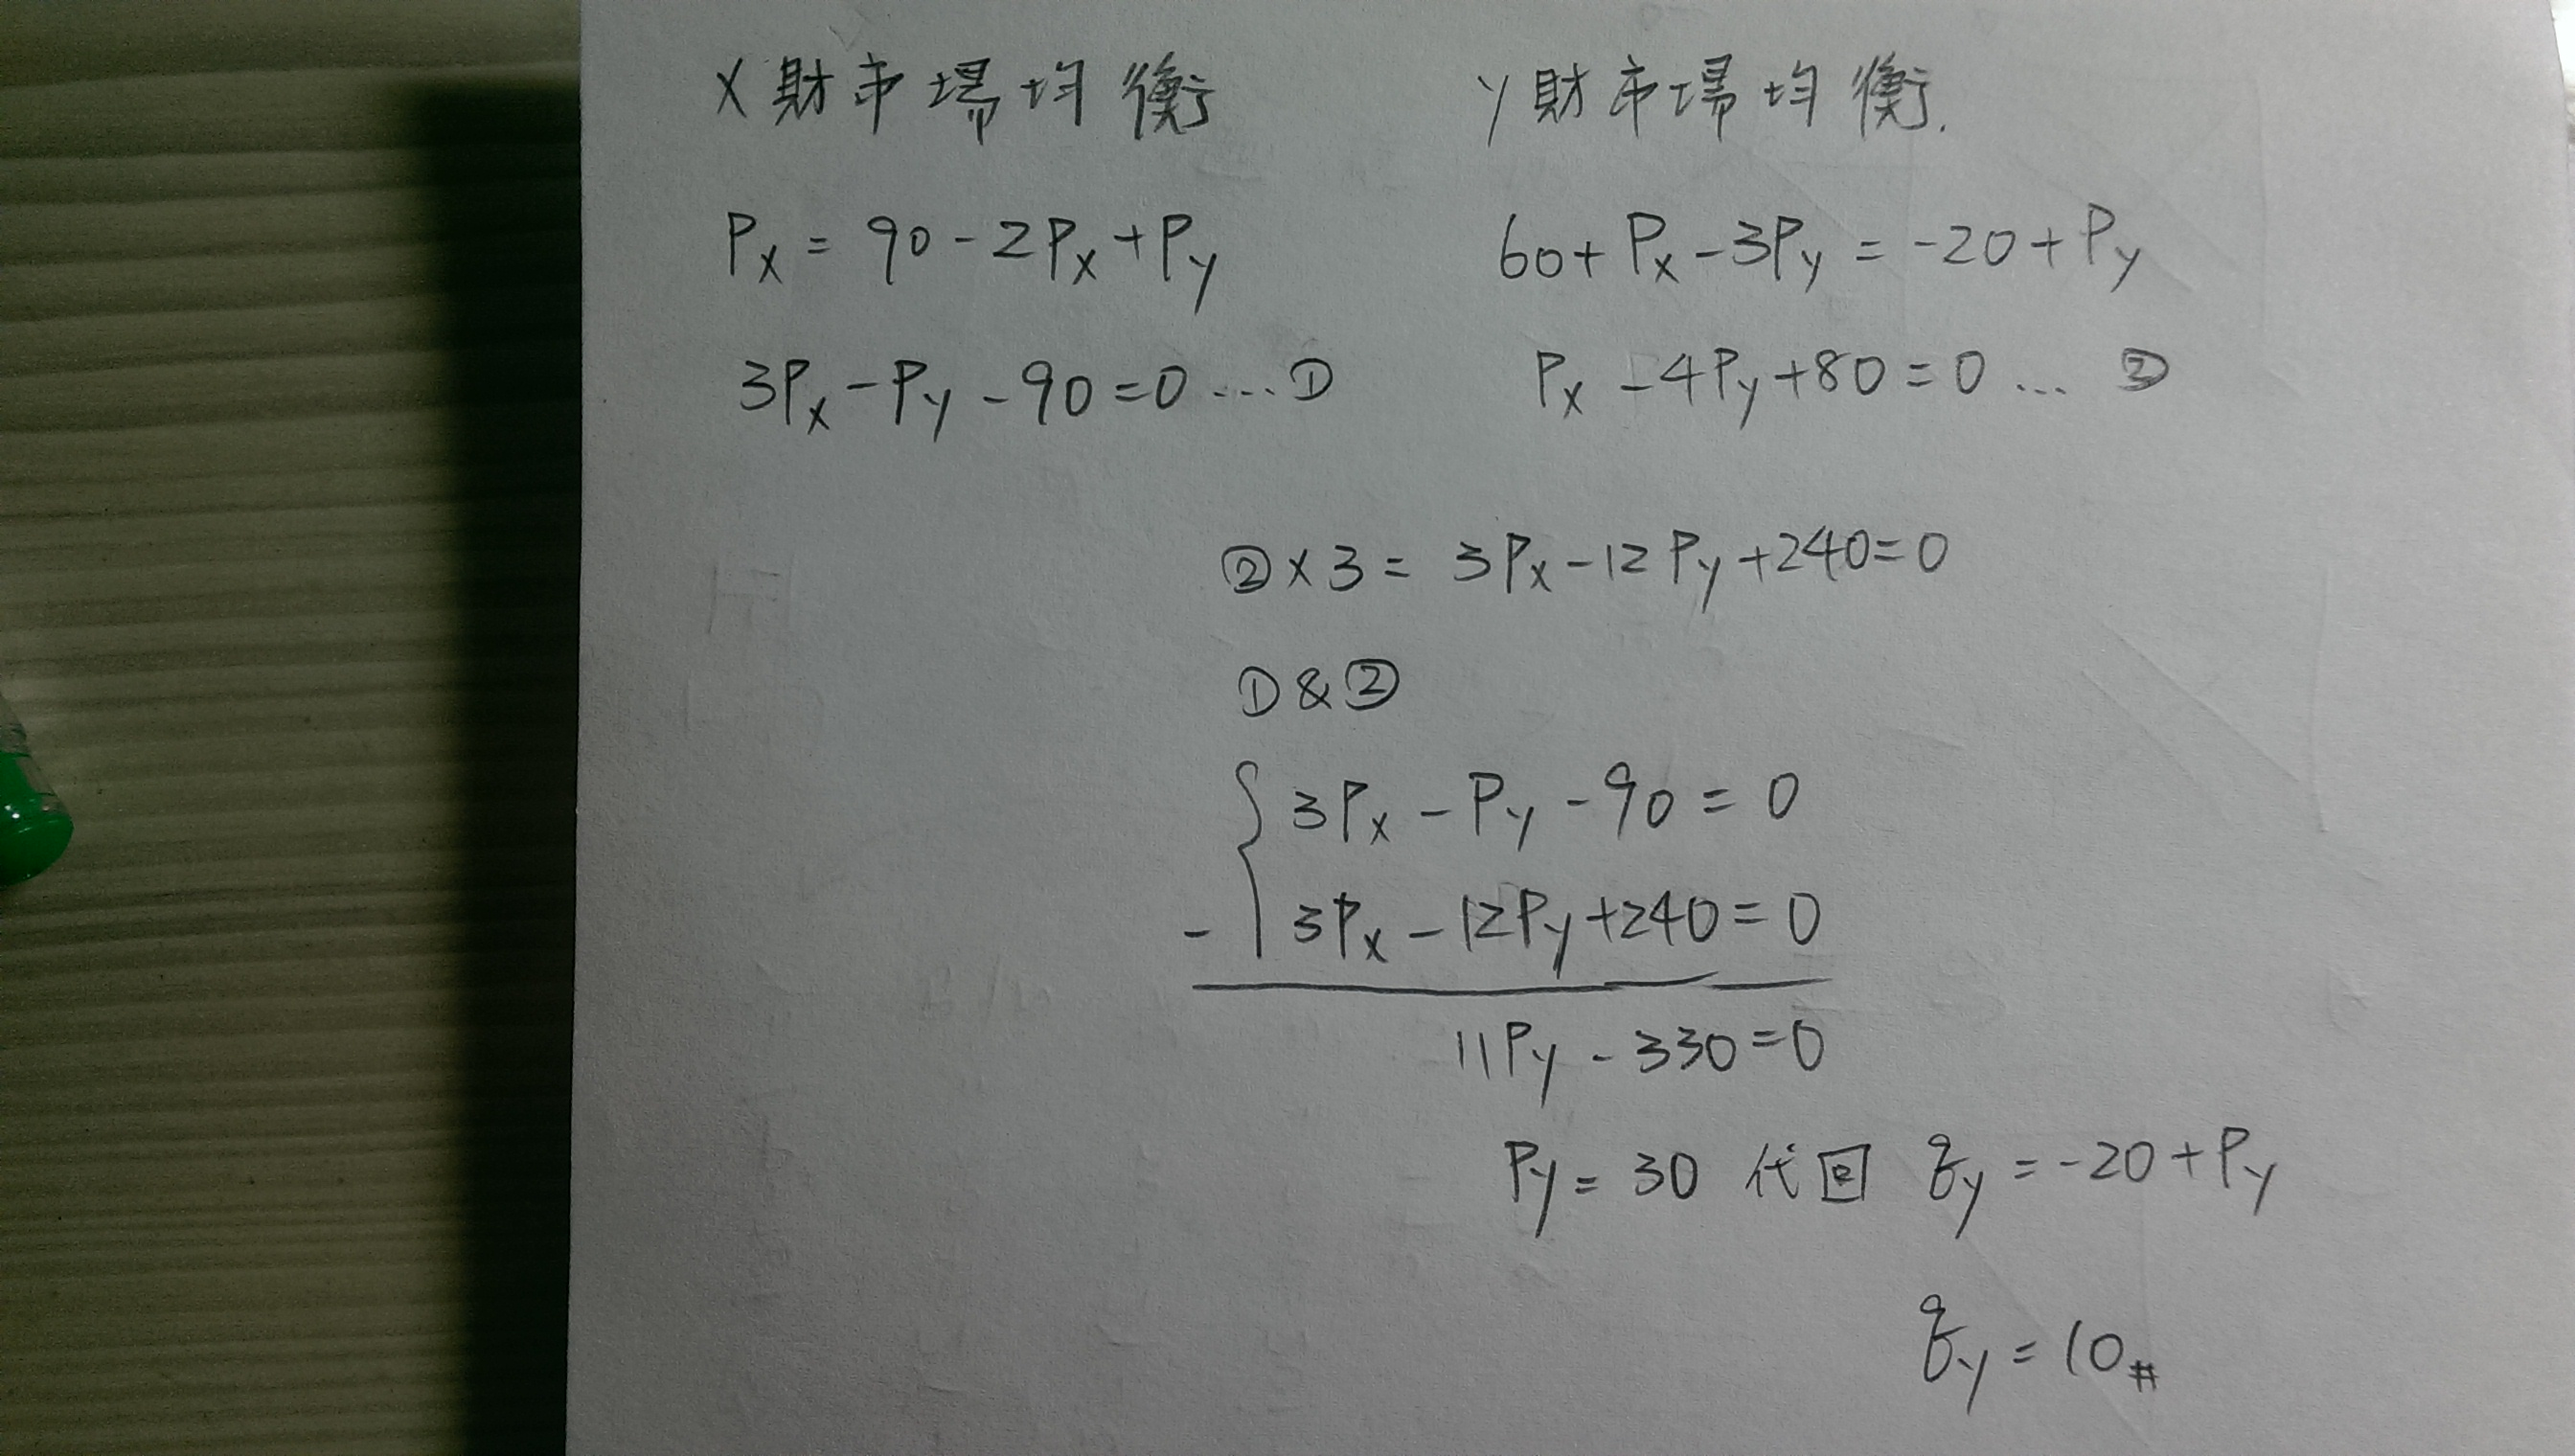 X財市場均衡
Px = 90 - 2Px + Py
3Px - Py - 90 = 0 ... ①
Y財市場均衡.
60 + Px - 3Py = -20 + Py
Px - 4Py + 80 = 0 ... ②
② × 3 = 3Px - 12Py + 240 = 0
① & ②
3Px - Py - 90 = 0
- 3Px - 12Py + 240 = 0
11Py - 330 = 0
Py = 30 代回 qy = -20 + Py
qy = 10 #